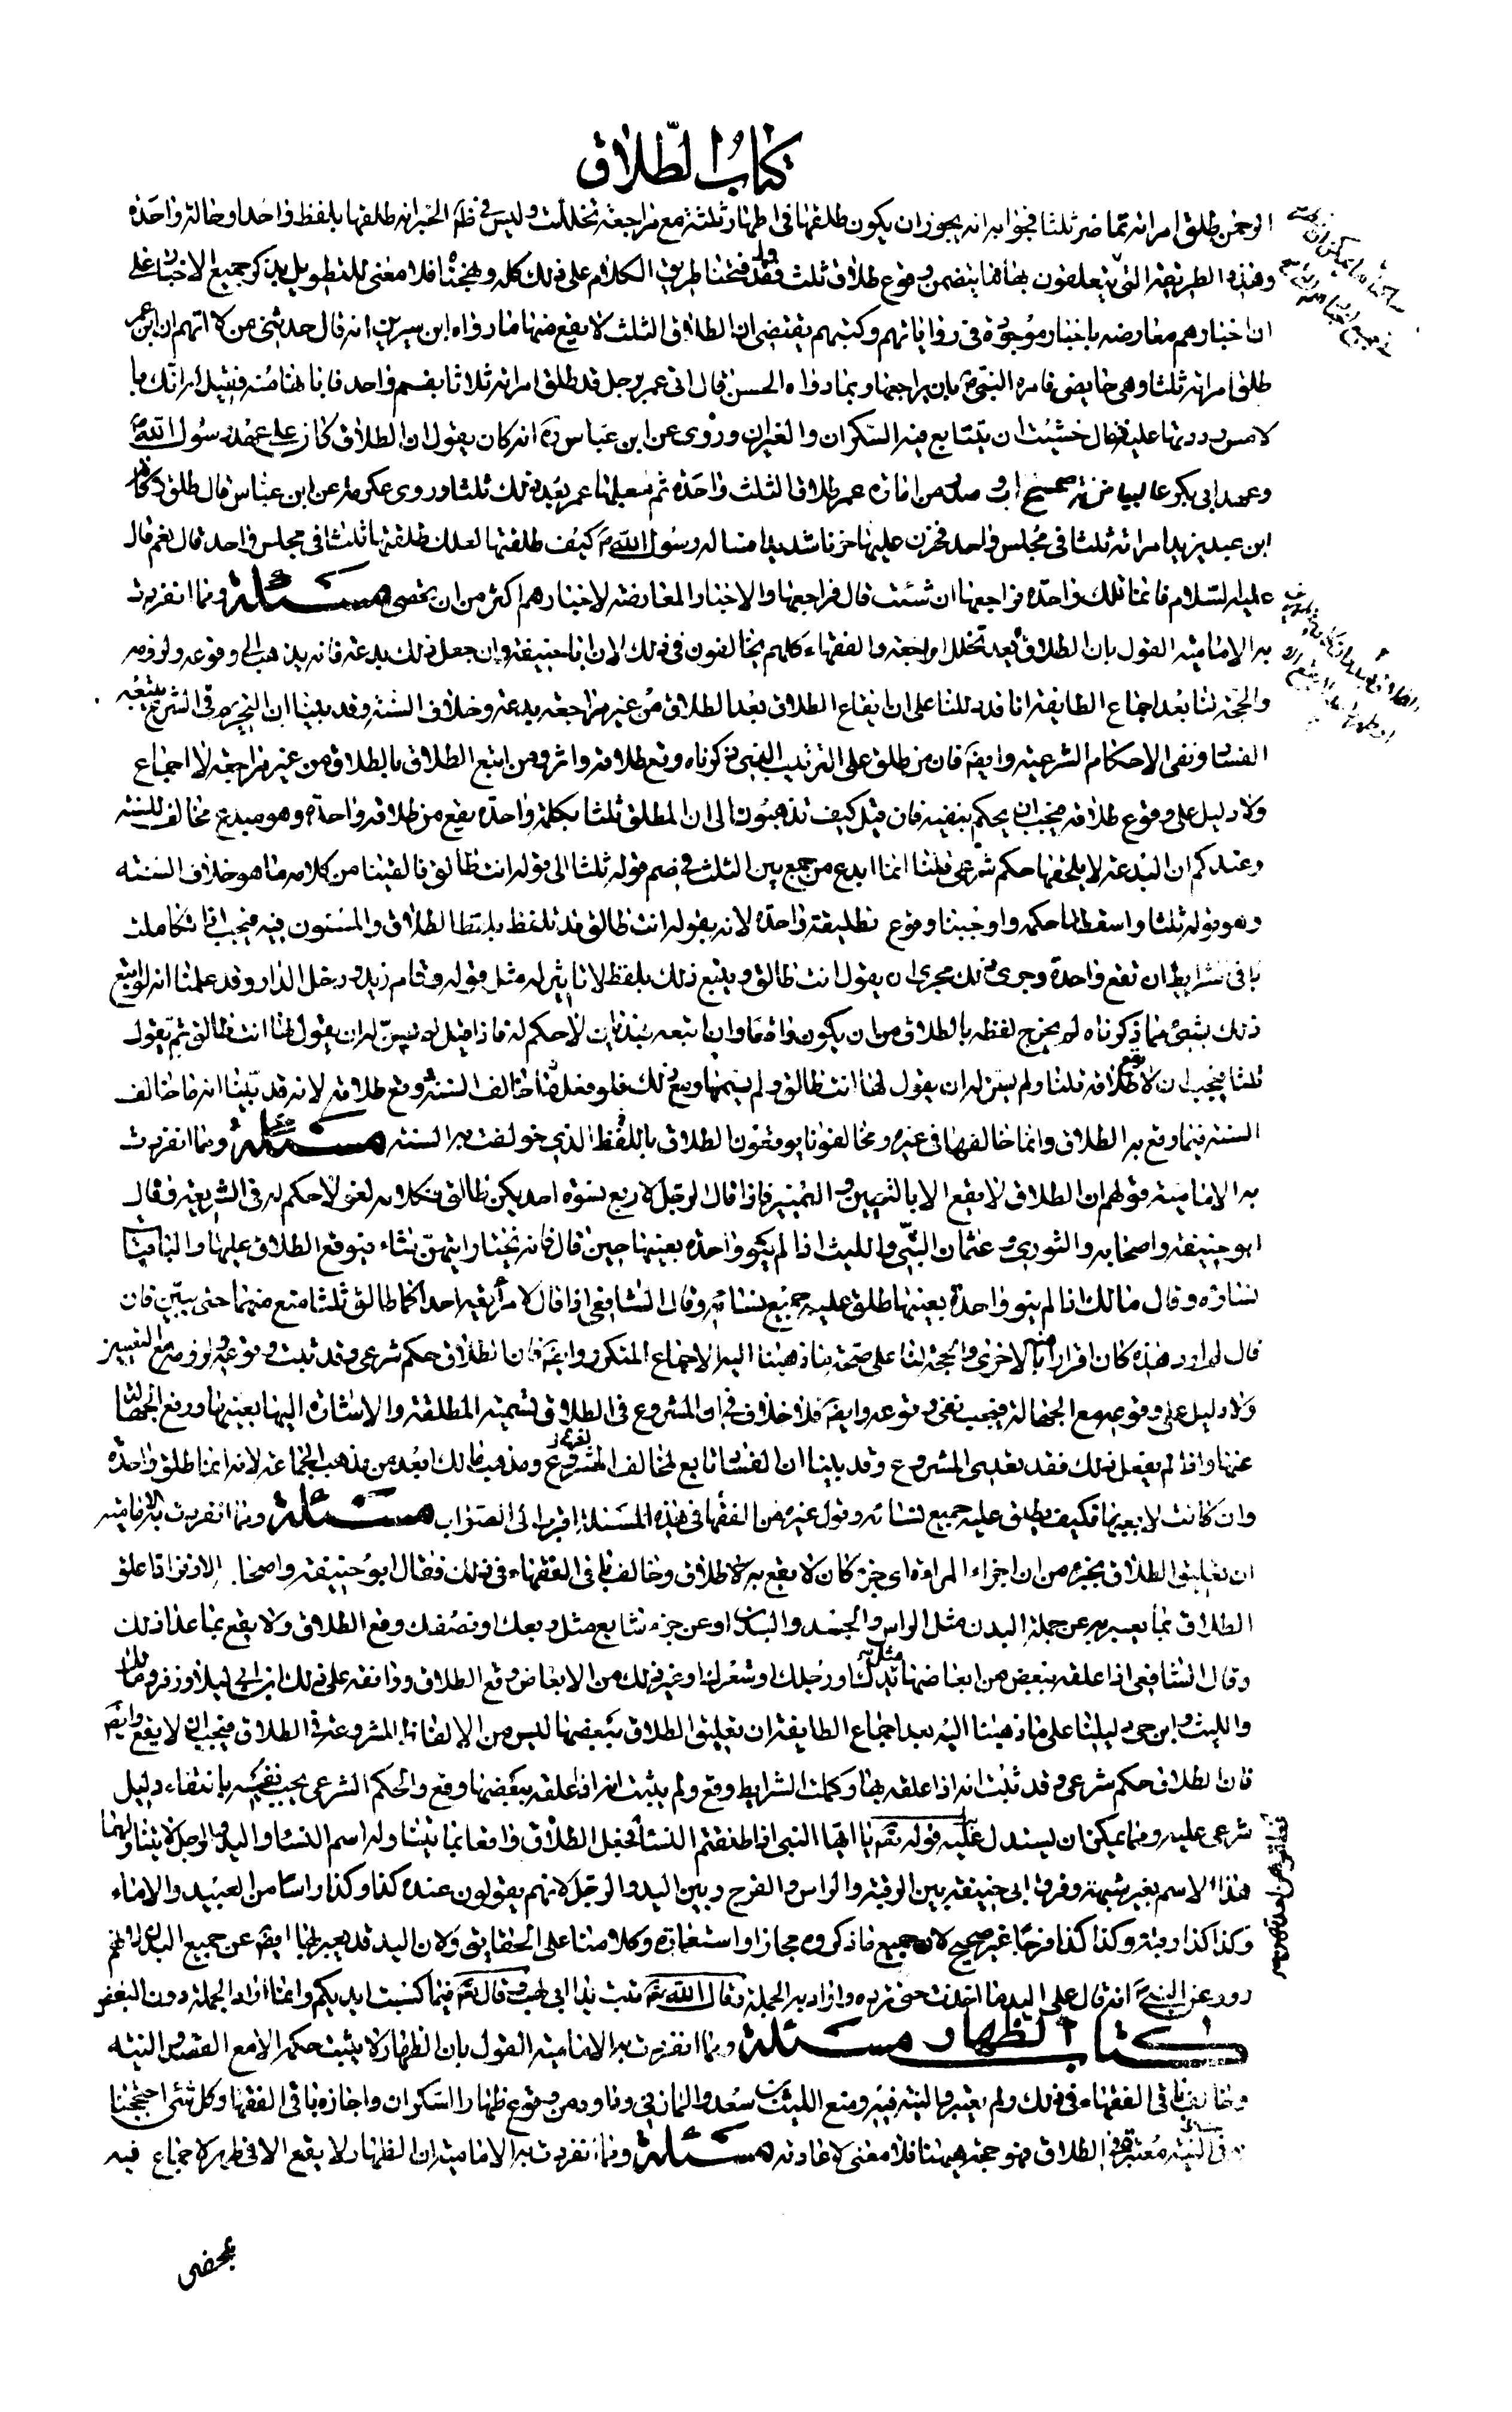 كتاب الطلاق
الرحمن طلق امراته تماضر ثلثا فجوابه انه يجوز ان يكون طلقها في اطهار ثلثة مع مراجعة تخللت وليس في ظاهر الخبر انه طلقها بلفظ واحد او حالة واحدة
وهذه الطريقة التي يتعلقون بها مما يتضمن وقوع طلاق ثلث فقد فتحنا طريق الكلام على ذلك كله ونهجناه فلا معنى للتطويل بذكر جميع الاخبار على
ان اخبارهم معارضة باخبار موجودة في رواياتهم وكتبهم يقتضي ان الطلاق الثلث لا يقع منها ما رواه ابن سيرين انه قال حدثني من لا اتهم ان ابن عمر
طلق امراته ثلثا وهي حايض فامره النبي ص بان يراجعها وبما رواه الحسن قال اتى عمر برجل قد طلق امراته ثلاثا بفم واحد فانا هامنه فقيل له انك بالا
لامس رددتها عليه فقال خشيت ان يتتابع فيه السكران والغيران وروى عن ابن عباس ره انه كان يقول ان الطلاق كان على عهد رسول الله ص
وعهد ابي بكر وصدر من امارة عمر طلاق الثلث واحدة ثم جعلها عمر بعد ذلك ثلثا وروى عكرمة عن ابن عباس قال طلق ركانة
ابن عبد يزيد امراته ثلثا في مجلس واحد فحزن عليها حزنا شديدا فساله رسول الله ص كيف طلقتها لعلك طلقتها ثلثا في مجلس واحد قال نعم قال
عليه السلام فانما تلك واحدة فراجعها ان شئت قال فراجعها والاخبار المعارضة لاخبارهم اكثر من ان تحصى مسئلة ومما انفردت
به الامامية القول بان الطلاق بعد تخلل المراجعة والفقهاء كلهم يخالفون في ذلك لان ابا حنيفة وان جعل ذلك بدعة فانه يذهب الى وقوعه ولزومه
والحجة لنا بعد اجماع الطايفة انا قد دللنا على ان ايقاع الطلاق بعد الطلاق من غير مراجعة بدعة وخلاف السنة وقد بينا ان التحريم في الشرع يتبعه
الفساد ونفي الاحكام الشرعية وايضا فان من طلق على الترتيب الذي ذكرناه وقع طلاقه واثر ومن اتبع الطلاق بالطلاق من غير مراجعة لا اجماع
ولا دليل على وقوع طلاقه فيجب ان يحكم بنفيه فان قيل كيف تذهبون الى ان المطلق ثلثا بكلمة واحدة يقع من طلاقه واحدة وهو مبدع مخالف للسنة
وعندكم ان البدعة لا يلحقها حكم شرعي قلنا انما ابدع من جمع بين الثلث في ضم قوله ثلثا الى قوله انت طالق فالقينا من كلامه ما هو خلاف السنة
وهو قوله ثلثا واسقطنا حكمه واوجبنا وقوع تطليقة واحدة لانه بقوله انت طالق قد تلفظ بلفظ الطلاق والمسنون فيه فيجب اذا تكاملت
باقي شرايط ان تقع واحدة وجرى ذلك مجرى ان يقول انت طالق ويتبع ذلك بلفظ لا تاثير له مثل قوله وقام زيد ودخل الدار وقد علمنا انه لو اتبع
ذلك بشئ مما ذكرناه لم يخرج لفظه بالطلاق من ان يكون واقعا وان اتبعه بهذيان لا حكم له فاذا قيل لم يسن له ان يقول لها انت طالق ثم يقول
ثلثا فيجب ان لا يقع طلاقه قلنا ولم يسن له ان يقول لها انت طالق ولم يشتمها ومع ذلك فلو فعل هذا خالف السنة ووقع طلاقه لانه قد بينا انه ما خالف
السنة فيما وقع به الطلاق وانما خالفها في غيره ومخالفونا يوقعون الطلاق باللفظ الذي خولفت به السنة مسئلة ومما انفردت
به الامامية قولهم ان الطلاق لا يقع الا بالتعيين والتمييز فاذا قال الرجل لاربع نسوة احديكن طالق فكلامه لغو لا حكم له في الشريعة وقال
ابو حنيفة واصحابه والثوري وعثمان البتي والليث اذا لم ينو واحدة بعينها حين قال فانه يختار ايتهن شاء فيوقع الطلاق عليها والباقيات
نساؤه وقال مالك اذا لم ينو واحدة بعينها طلق عليه جميع نسائه وقال الشافعي اذا قال لامراتيه احداكما طالق ثلثا منع منهما حتى يبين فان
قال لم ارد هذه كان اقرارا منه بالاخرى والحجة لنا على صحة ما ذهبنا اليه الاجماع المتكرر وايضا فان الطلاق حكم شرعي وقد ثبت وقوعه ولزومه مع التعيين
ولا دليل على وقوعه مع الجهالة فيجب نفي وقوعه وايضا فلا خلاف في ان المشروع في الطلاق تسمية المطلقة والاشارة اليها بعينها ورفع الجهالة
عنها واذا لم يفعل ذلك فقد تعدى المشروع وقد بينا ان الفساد تابع لمخالف المشروع ومذهب مالك ابعد من مذهب الجماعة لانه انما طلق واحدة
وان كانت لا بعينها فكيف يطلق عليه جميع نسائه وقول غيره من الفقهاء في هذه المسئلة اقرب الى الصواب مسئلة ومما انفردت به الامامية
ان تعليق الطلاق بجزء من اجزاء المراة اي جزء كان لا يقع به طلاق وخالف باقي الفقهاء في ذلك فقال ابو حنيفة واصحابه الا زفر اذا علق
الطلاق بما يعبر به عن جملة البدن مثل الراس والجسد والبدن او عن جزء شايع مثل ربعك او نصفك وقع الطلاق ولا يقع بما عدا ذلك
وقال الشافعي اذا علقه ببعض من ابعاضها مثل يدك او رجلك او شعرك او غير ذلك من الابعاض وقع الطلاق ووافقه على ذلك ابن ابي ليلى وزفر ومالك
والليث وابن حي دليلنا على ما ذهبنا اليه بعد اجماع الطايفة ان تعليق الطلاق ببعضها ليس من الالفاظ المشروعة في الطلاق فيجب ان لا يقع وايضا
فان الطلاق حكم شرعي وقد ثبت انه اذا علقه بها وكملت الشرايط وقع ولم يثبت انه اذا علقه ببعضها وقع والحكم الشرعي يجب نفيه بانتفاء دليل
شرعي عليه ومما يمكن ان يستدل عليه قوله تعالى يا ايها النبي اذا طلقتم النساء فجعل الطلاق واقعا بما يتناوله اسم النساء واليد والرجل لا يتناولهما
هذا الاسم بغير شبهة وفرق ابي حنيفة بين الرقبة والراس والفرج وبين اليد والرجل لانهم يقولون عنده كذا وكذا راسا من العبيد والاماء
وكذا كذا رقبة وكذا كذا فرجا غير صحيح لان جميع ما ذكروه مجاز او استعارة وكلامنا على الحقايق ولان اليد قد يعبر بها ايضا عن جميع البدن لانهم
رووا عن النبي ص انه قال على اليد ما اخذت حتى ترده واراد به الجملة وقال الله تعالى تبت يدا ابي لهب وقال تعالى فيما كسبت ايديكم وانما اراد الجملة دون البعض
كتاب الظهار مسئلة ومما انفردت به الامامية القول بان الظهار لا يثبت حكمه الا مع القصد والنية
وخالف باقي الفقهاء في ذلك ولم يعتبروا النية فيه ومنع الليث بن سعد والمزني وداود من وقوع ظهار السكران واجازه باقي الفقهاء وكل شئ احتججنا
به في ان النية معتبرة في الطلاق فهو حجة ههنا فلا معنى لاعادته مسئلة ومما انفردت به الامامية ان الظهار لا يقع الا في طهر لا جماع فيه